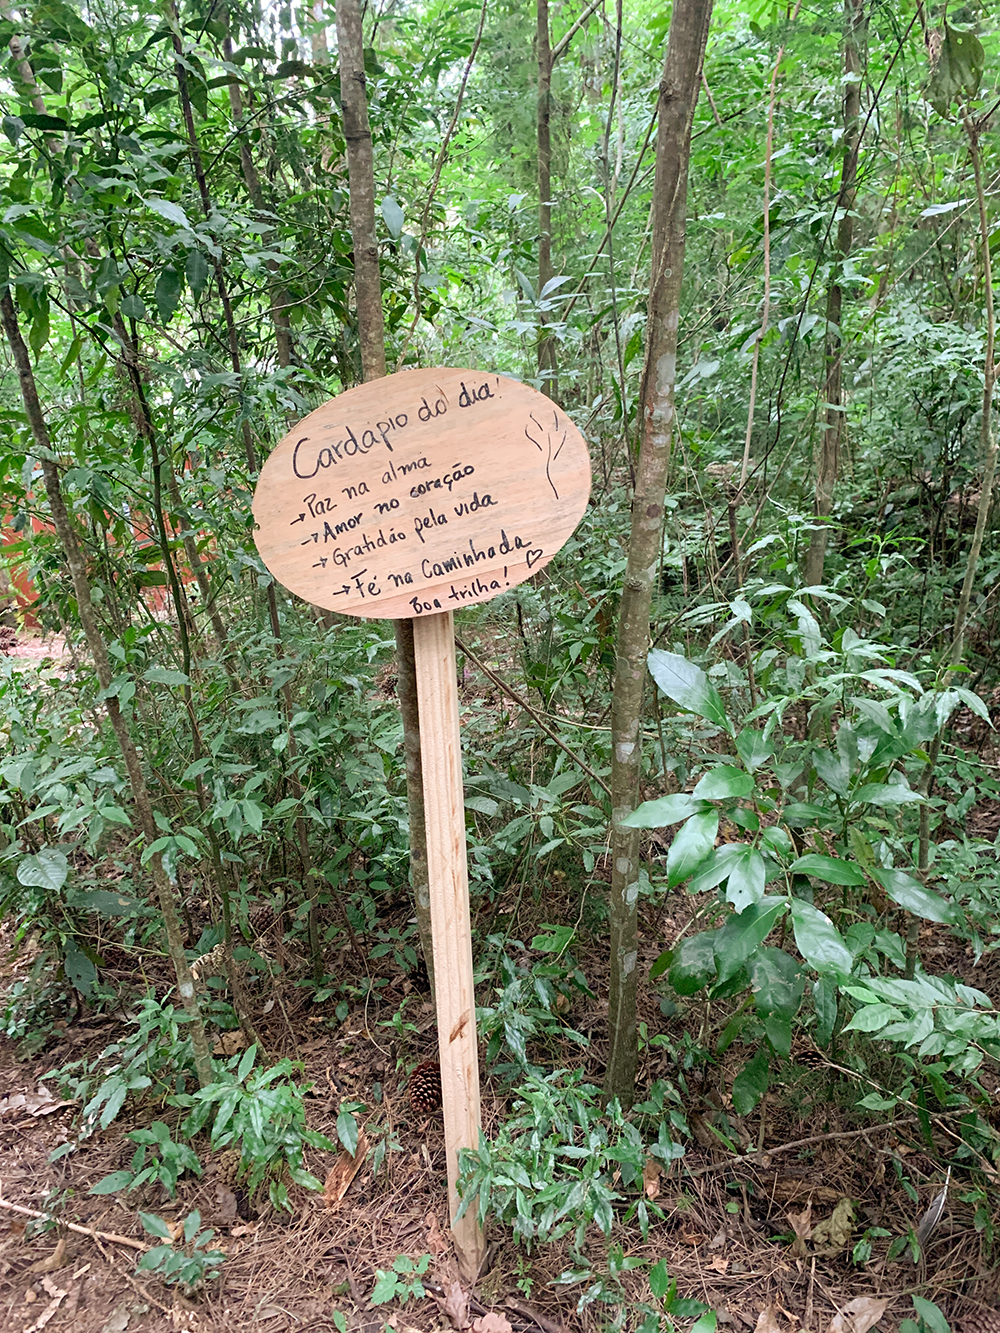 Cardápio do dia!
→Paz na alma
→Amor no coração
→Gratidão pela vida
→Fé na Caminhada
Boa trilha! ♡